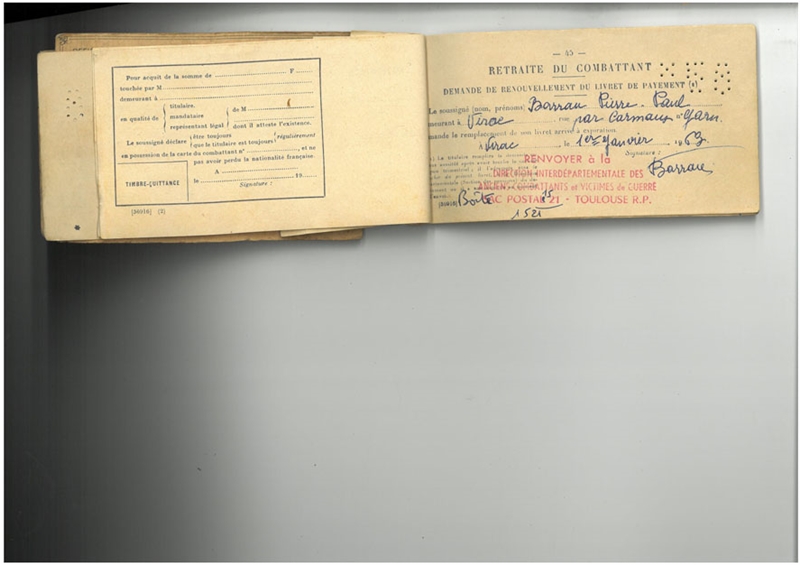 Pour acquit de la somme de F
touchée par M
demeurant à
en qualité de
titulaire.
mandataire
représentant légal
de M
dont il atteste l'existence.
Le soussigné déclare
être toujours
que le titulaire est toujours
régulièrement
en possession de la carte du combattant n° , et ne
pas avoir perdu la nationalité française
A
le 19
Signature :
TIMBRE-QUITTANCE
— 45 —
RETRAITE DU COMBATTANT
DEMANDE DE RENOUVELLEMENT DU LIVRET DE PAYEMENT
Le soussigné (nom, prénoms) Barrau Pierre-Paul
meurant à Virac rue par Carmaux n°
mande le remplacement de son livret arrivé à expiration.
A Virac , le 1er Janvier 1963
Signature :
Barrau
RENVOYER à la
DIRECTION INTERDÉPARTEMENTALE DES
ANCIENS COMBATTANTS et VICTIMES de GUERRE
Boîte POSTAL 21 - TOULOUSE R.P.
15
1521